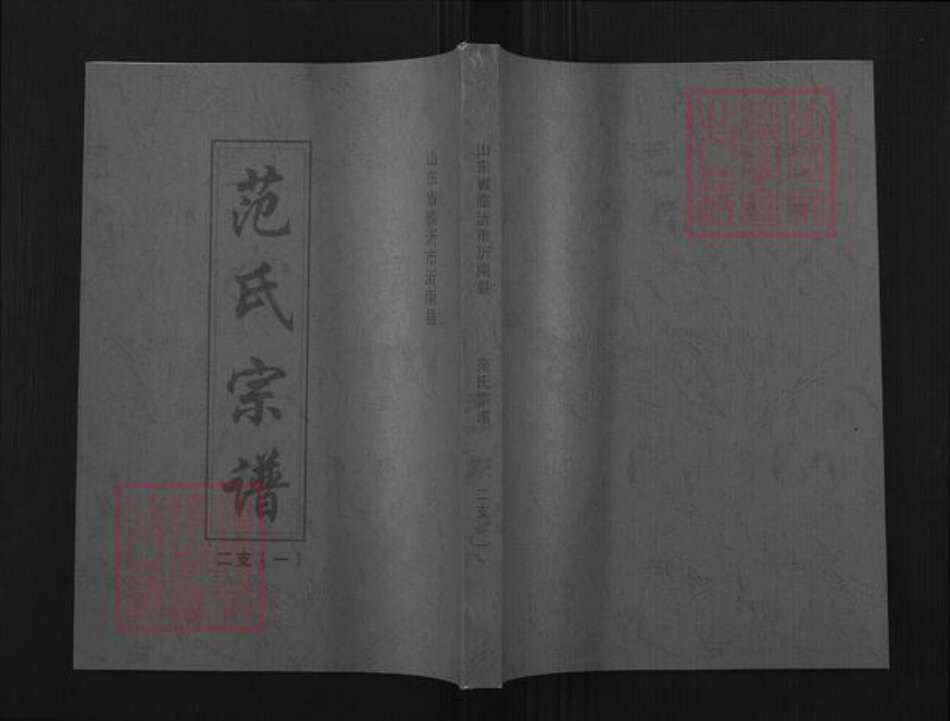 范氏宗谱
二支（一）
山东省临沂市沂南县
山东省临沂市沂南县
范氏宗谱
二支（一）